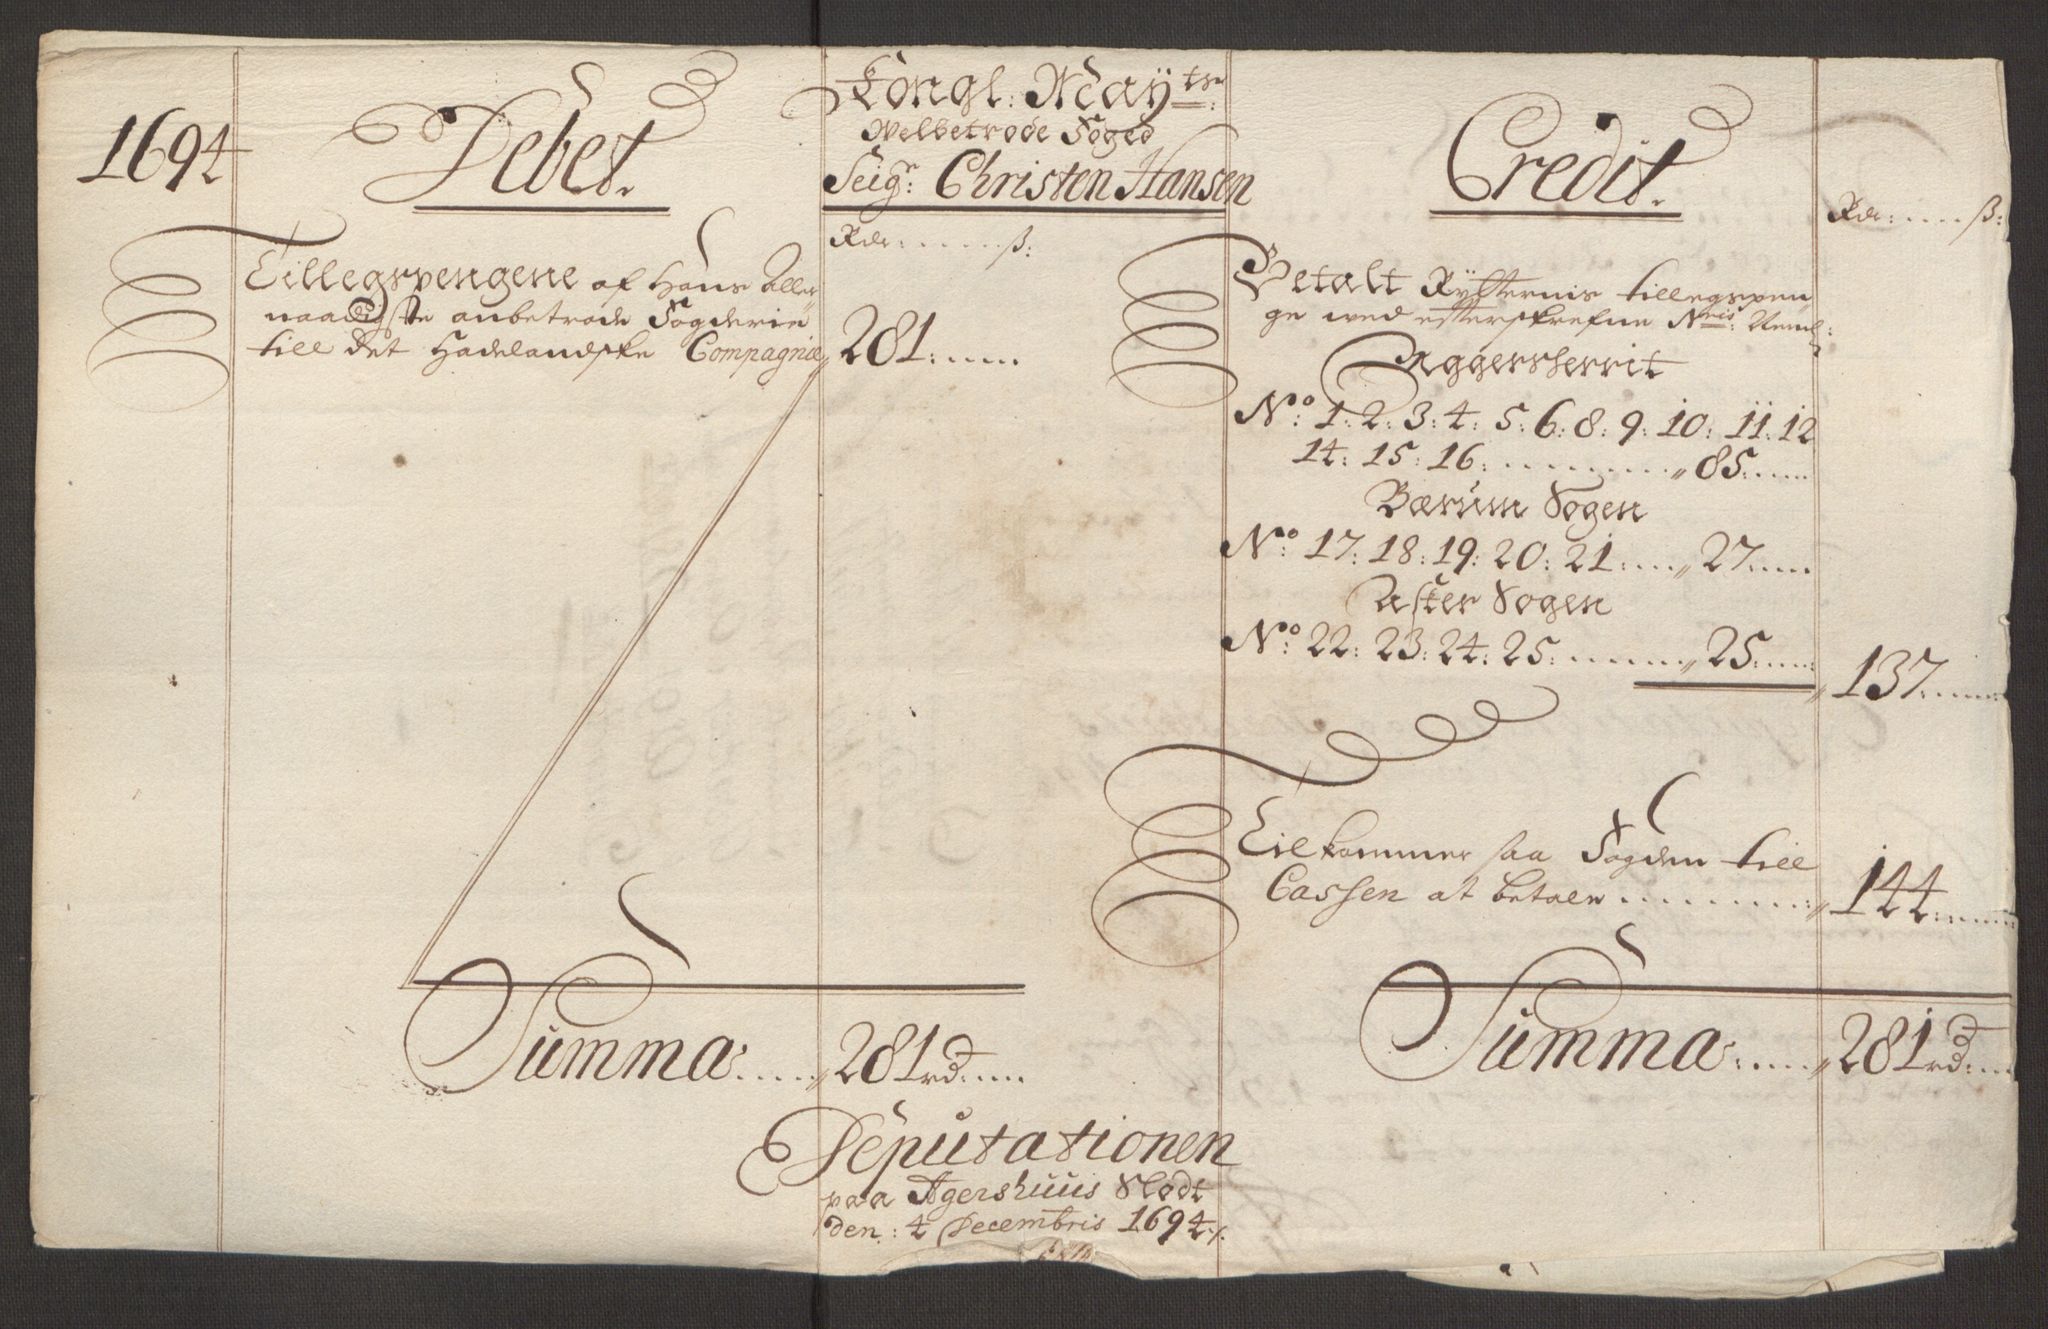 1694
Debet.
Kongl: Maÿts:
Welbetrode Foged
Seigr: Christen Hansen
Credit.
Rdr: ß:
Rdr: ß:
Tillegspengene af Hans Aller
naadigste anbetrode Fogderie
till det Hadelandske Compagnie 281:
Betalt Rÿtternis tillegspen
ge wed efterskrefne Nris: Neml:
Aggersherrit
No: 1: 2: 3: 4: 5: 6: 8: 9: 10: 11: 12
14: 15: 16: 85:
Bærum Sogen
No: 17: 18: 19: 20: 21: 27:
Asker Sogen
No: 22: 23: 24: 25: 25: 137:
Tilkommer saa Fogden till
Cassen at betale 144:
Summa: 281 rd:
Summa: 281 rd:
Deputationen
paa Agershuus Slodt
den: 4 Decembris 1694